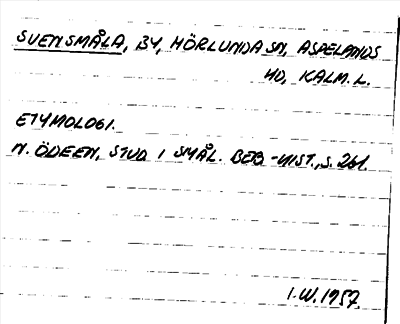 SVENSMÅLA, BY, HÖRLUNDA SN, ASPELANDS
HD, KALM. L.
ETYMOLOGI.
N. ÖDEEN, STUD I SMÅL. BEB-HIST., S. 261.
I.W. 1957.